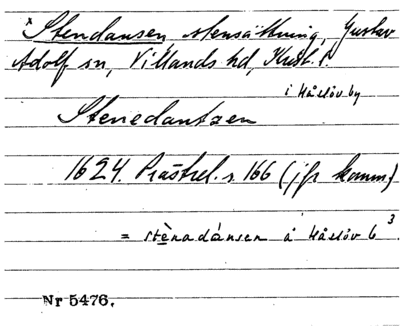 x Stendansen stensättning, Gustav
Adolf sn, Villands hd, Krist. l.
i Håslöv by
Stenedantzen
1624. Prästrel. s 166 (jfr komm.)
= stènadánsen å Håslöv 6 3
Nr 5476.